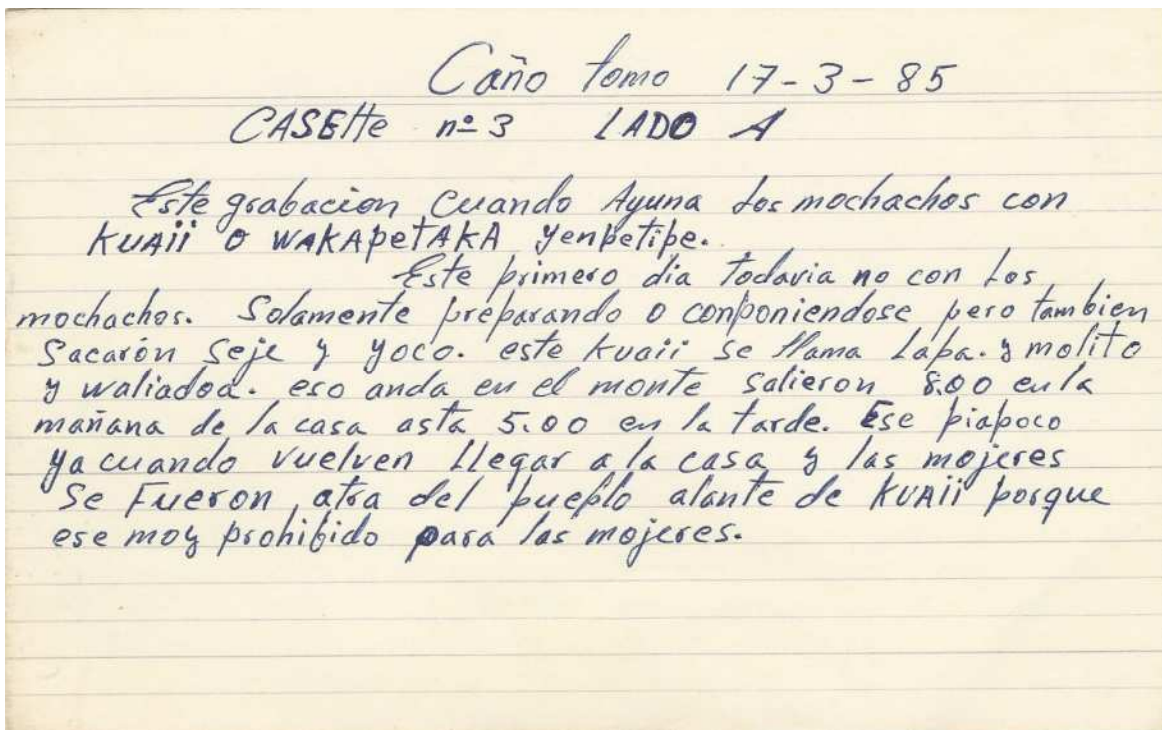 Caño tomo 17-3-85
CASEtte nº 3 LADO A
Este grabacion Cuando Ayuna Los mochachos con
KUAii O WAKAPetAKA yenpetipe.
Este primero dia todavia no con Los
mochachos. Solamente preparando o conponiendose pero tambien
Sacarón Seje y yoco. este Kuaii se llama Lapa. y molito
y waliadoa. eso anda en el monte salieron 8.00 en la
mañana de la casa asta 5.00 en la tarde. Ese piapoco
ya cuando vuelven Llegar a la casa y las mojeres
Se Fueron atra del pueplo alante de KUAii porque
ese moy prohibido para las mojeres.